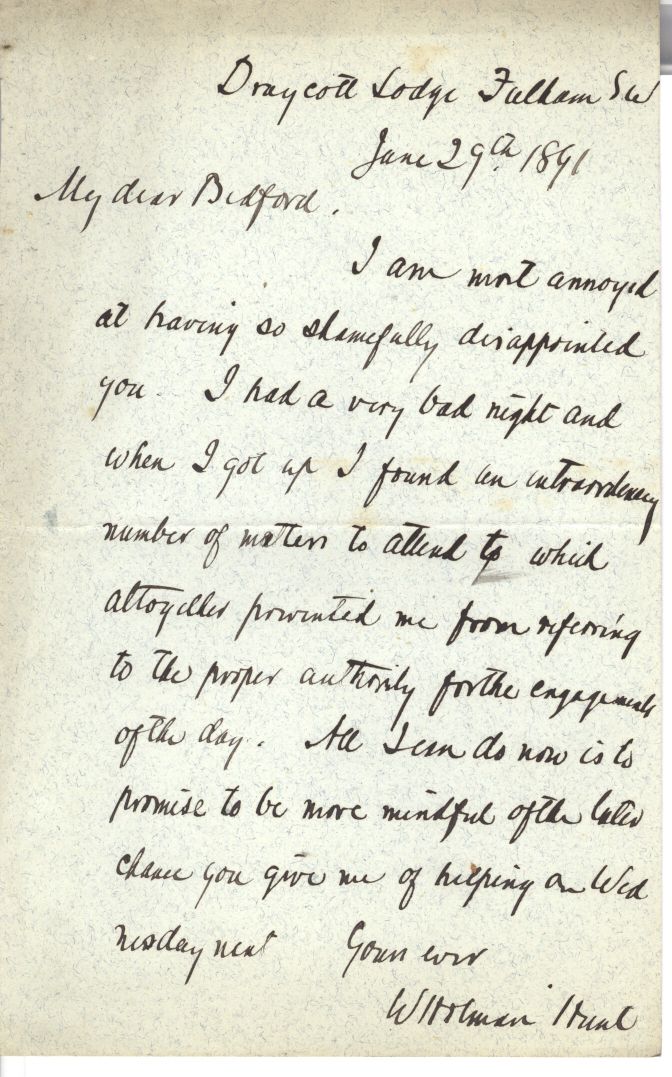 Draycott Lodge Fulham SW
June 29th 1891
My dear Bedford.
I am most annoyed
at having so shamefully disappointed
you. I had a very bad night and
when I got up I found an extraordinary
number of matters to attend to which
altogether prevented me from referring
to the proper authority for the engagements
of the day. All I can do now is to
promise to be more mindful of the later
chance you give me of helping on Wed
nesday next Yours ever
W Holman Hunt